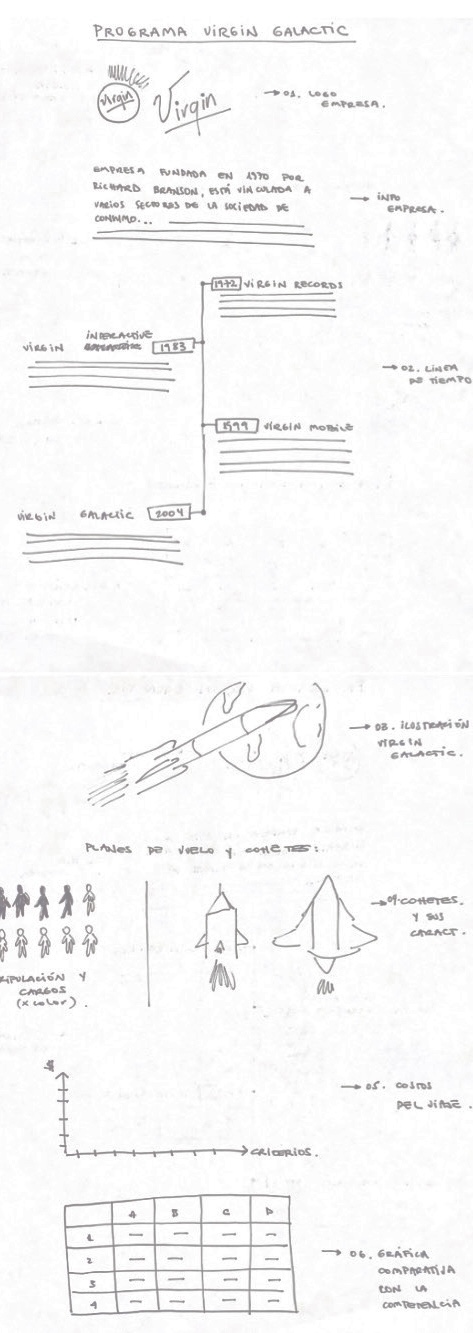 PROGRAMA VIRGIN GALACTIC
Virgin
Virgin
→ 01. LOGO
EMPRESA.
EMPRESA FUNDADA EN 1970 POR
RICHARD BRANSON, ESTÁ VINCULADA A
VARIOS SECTORES DE LA SOCIEDAD DE
CONSUMO...
→ INFO
EMPRESA.
1972 VIRGIN RECORDS
INTERACTIVE
VIRGIN 1983
→ 02. LINEA
DE TIEMPO
1999 VIRGIN MOBILE
VIRGIN GALACTIC 2004
→ 03. ILUSTRACIÓN
VIRGIN
GALACTIC.
PLANES DE VUELO Y COHETES:
→ 04. COHETES
Y SUS
CARACT.
RIPULACIÓN Y
CARGOS
(X COLOR).
→ 05. COSTOS
DEL VIAJE.
CRITERIOS.
A B C D
1
2
3
4
→ 06. GRÁFICA
COMPARATIVA
CON LA
COMPETENCIA